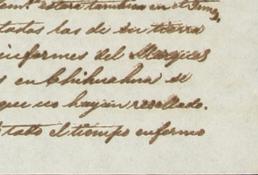 estará tambien en el
todas las de su tierra
informes del Marques
s en Chihuahua se
que no hayan resollado.
todo el tiempo enfermo